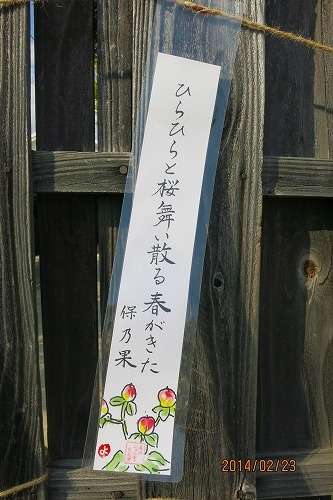 ひらひらと桜舞い散る春がきた
保乃果
2014/02/23